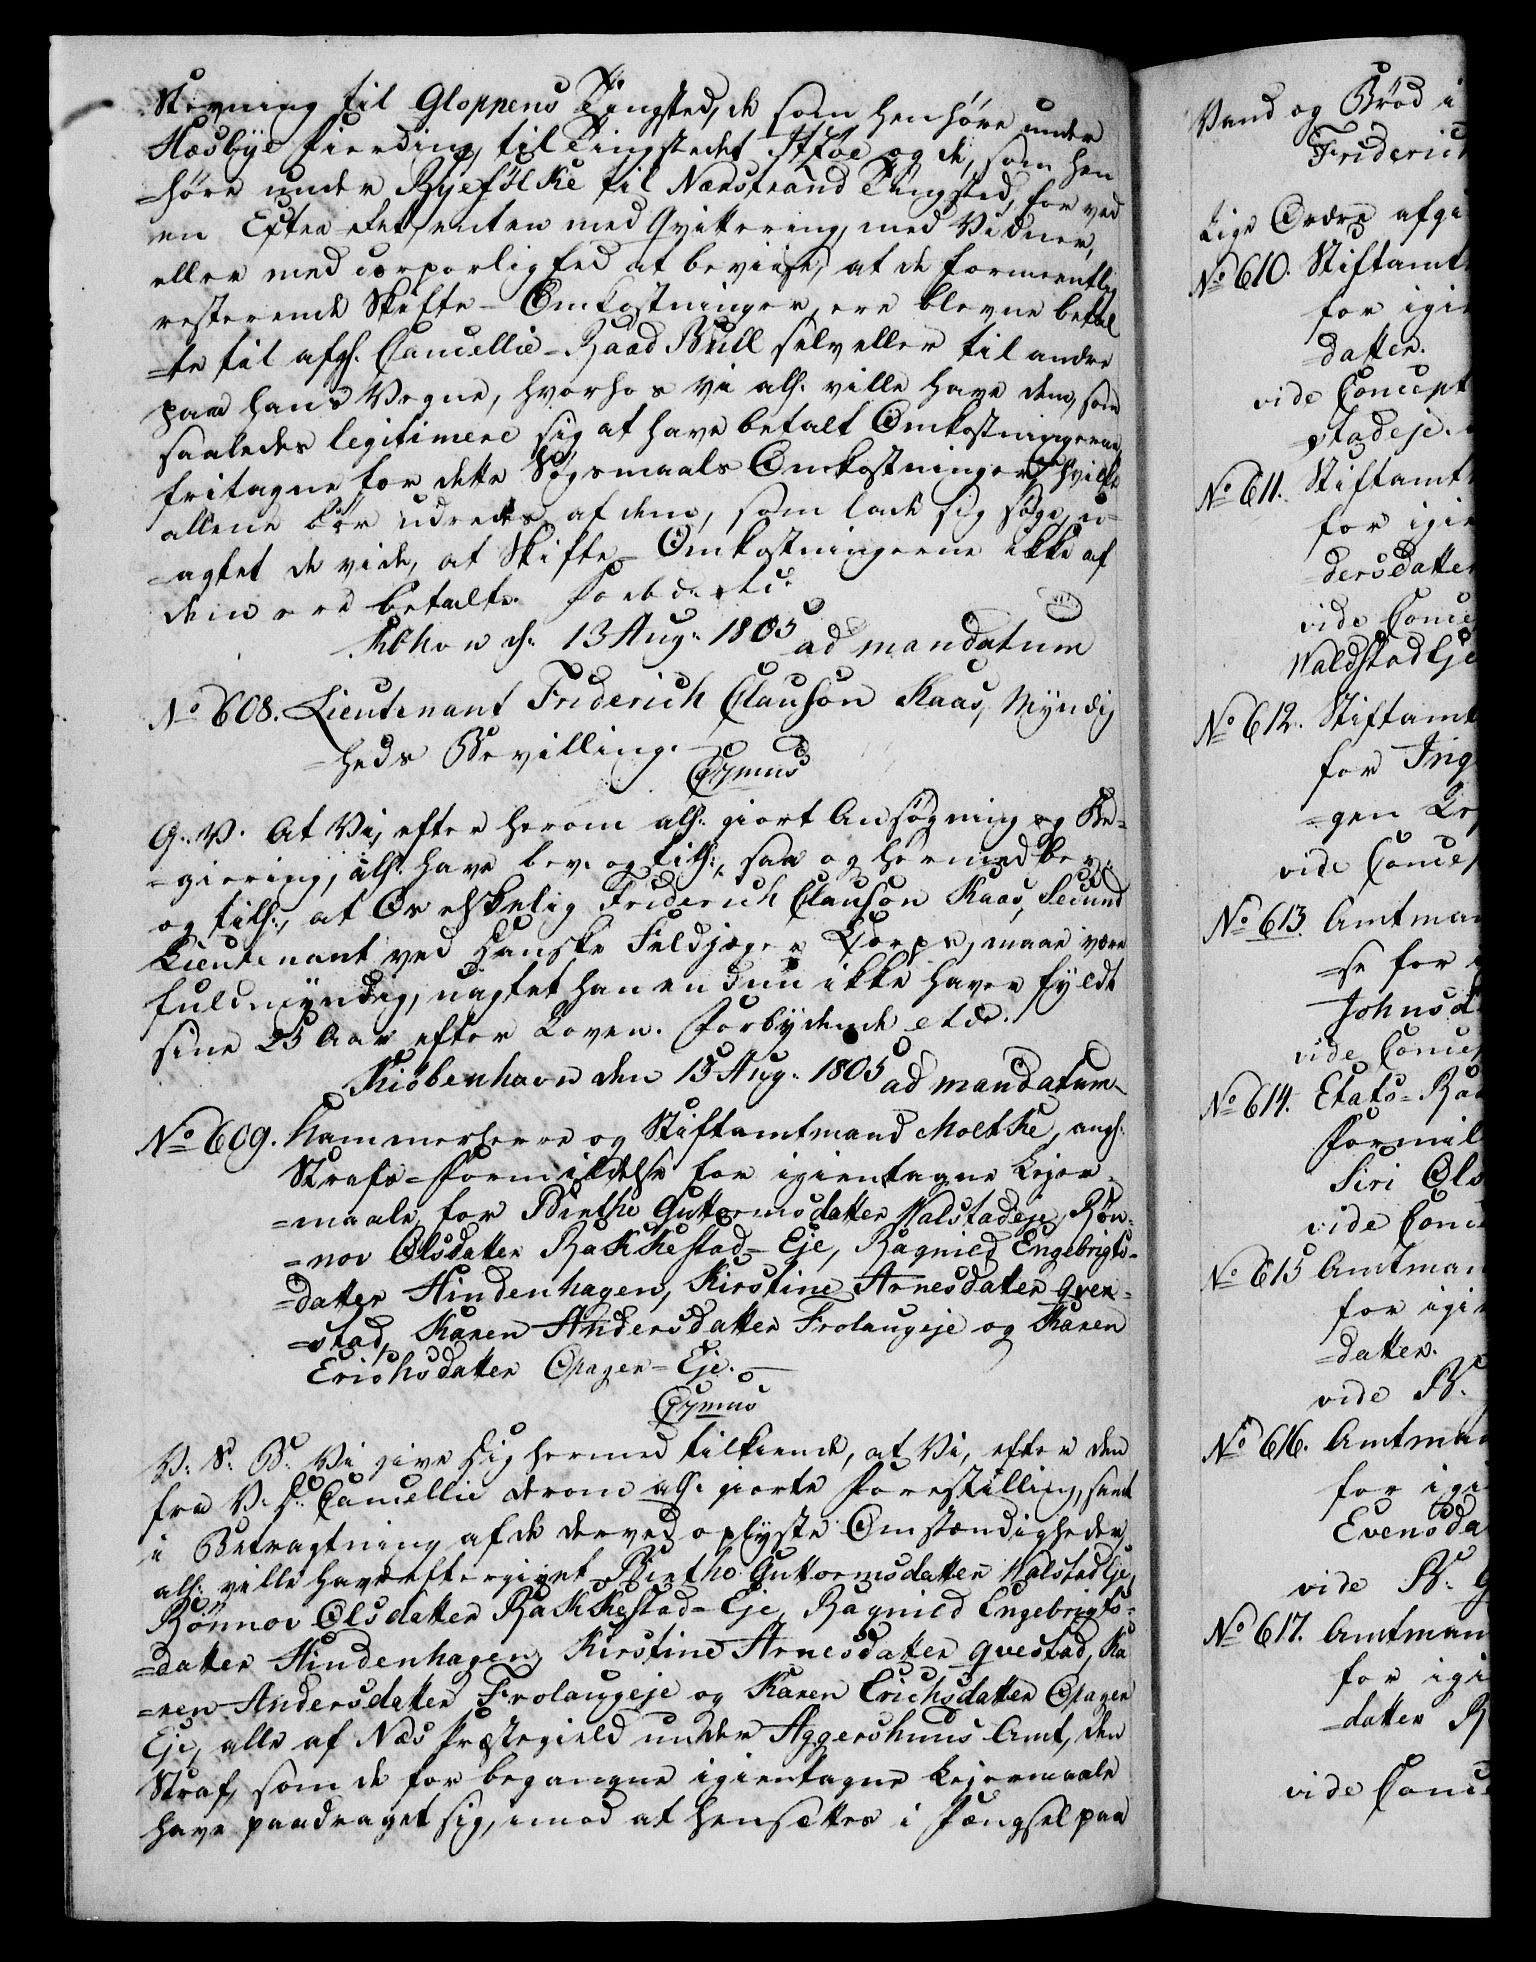 Stevning til Gloppens Tingsted, de som henhöre under
Hæsbye Fierding, til Tingstedet og de, som hen
=höre under Ryefölke til Nærstrand Tingsted, for ved
en Eftee Eed, enten med Qvittering, med Vidner,
eller med corporlig Eed at beviise, at de formeentlig
resterende Skifte-Omkostninger ere blevne betal
=te til afg. Cancellie-Raad Bull selv eller til andre
paa hans Vegne, hvorhos Vi alh. ville have dem, som
saaledes legitimere sig at have betalt Omkostningerne
fritagne for dette Søgsmaals Omkostninger, hvilke
allene bør udredes af dem, som lade sig søge, u-
=agtet de vide, at Skifte-Omkostningerne ikke af
dem ere betalte. Forbd. etc.
Kbhavn d. 13 Aug: 1805 ad mandatum
No 608. Lieutenant Friderich Clauson Kaas, Myndig
=heds Bevilling.
C17mus
G. V. At Vi, efter herom alh. giort Ansøgning og Be=
=giering, alh. have bev. og tilh:, saa og hermed bev.
og tilh:, at Os elskelig Friderich Clauson Kaas, Secund
Lieutenant ved danske Feldjæger Corps, maae være
fuldmyndig, uagtet han endnu ikke haver fyldt
sine 25 Aar efter Loven. Forbydende etc.
Kiöbenhavn den 13 Aug. 1805 ad mandatum
No 609. Kammerherre og Stiftamtmand Moltke, ang.
Strafs-Formildelse for igientagne Lejer-
=maale, for Birthe Guttormsdatter Halstadeje, Røn=
=nov Olsdatter Rakkestad=Eje, Ragnild Engebrigts=
=datter Hindenhagen, Kirstine Arnesdatter Qver=
=stad, Karen Andersdatter Frolaugeje og Karen
Erichsdatter Opager=Eje.
C17mus
V: S: B: Vi give dig hermed tilkiende, at Vi, efter den
fra V. D. Cancellie derom alh. giorte Forestilling, samt
i Betragtning af de derved oplyste Omstændigheder,
alh. ville have eftergivet Birthe Guttormsdatter Halstadeje,
Rønnov Olsdatter Rakkestad=Eje, Ragnild Engebrigts=
=datter Hindenhagen, Kirstine Arnesdatter Qvestad, Ka
=ren Andersdatter Frolaugeje og Karen Erichsdatter Opager
Eje, alle af Næs Præstegield under Aggershuus Amt, den
Straf, som de for begangne igientagne Lejermaale
have paadraget sig, imod at hensættes i Fængsel paa
Vand og Brød i
Friderich
Lige Ordre afgi
No 610. Stiftamt
for igie
=datter.
vide Concept
stadeje.
No 611. Stiftamt
for igie
=dersdatter
vide Conce
Waldstadeje
No 612. Stiftamt
for Ing
=gen
vide Concep
No 613. Amtman
=se for
Johnsd
vide Concep
No 614. Etats=Raa
Formil
Siri Ols
vide Conc
No 615 Amtman
for igie
=datter.
vide N.
No 616. Amtman
for igi
Evensda
vide N.
No 617. Amtman
for igi
=datter R
vide Conce